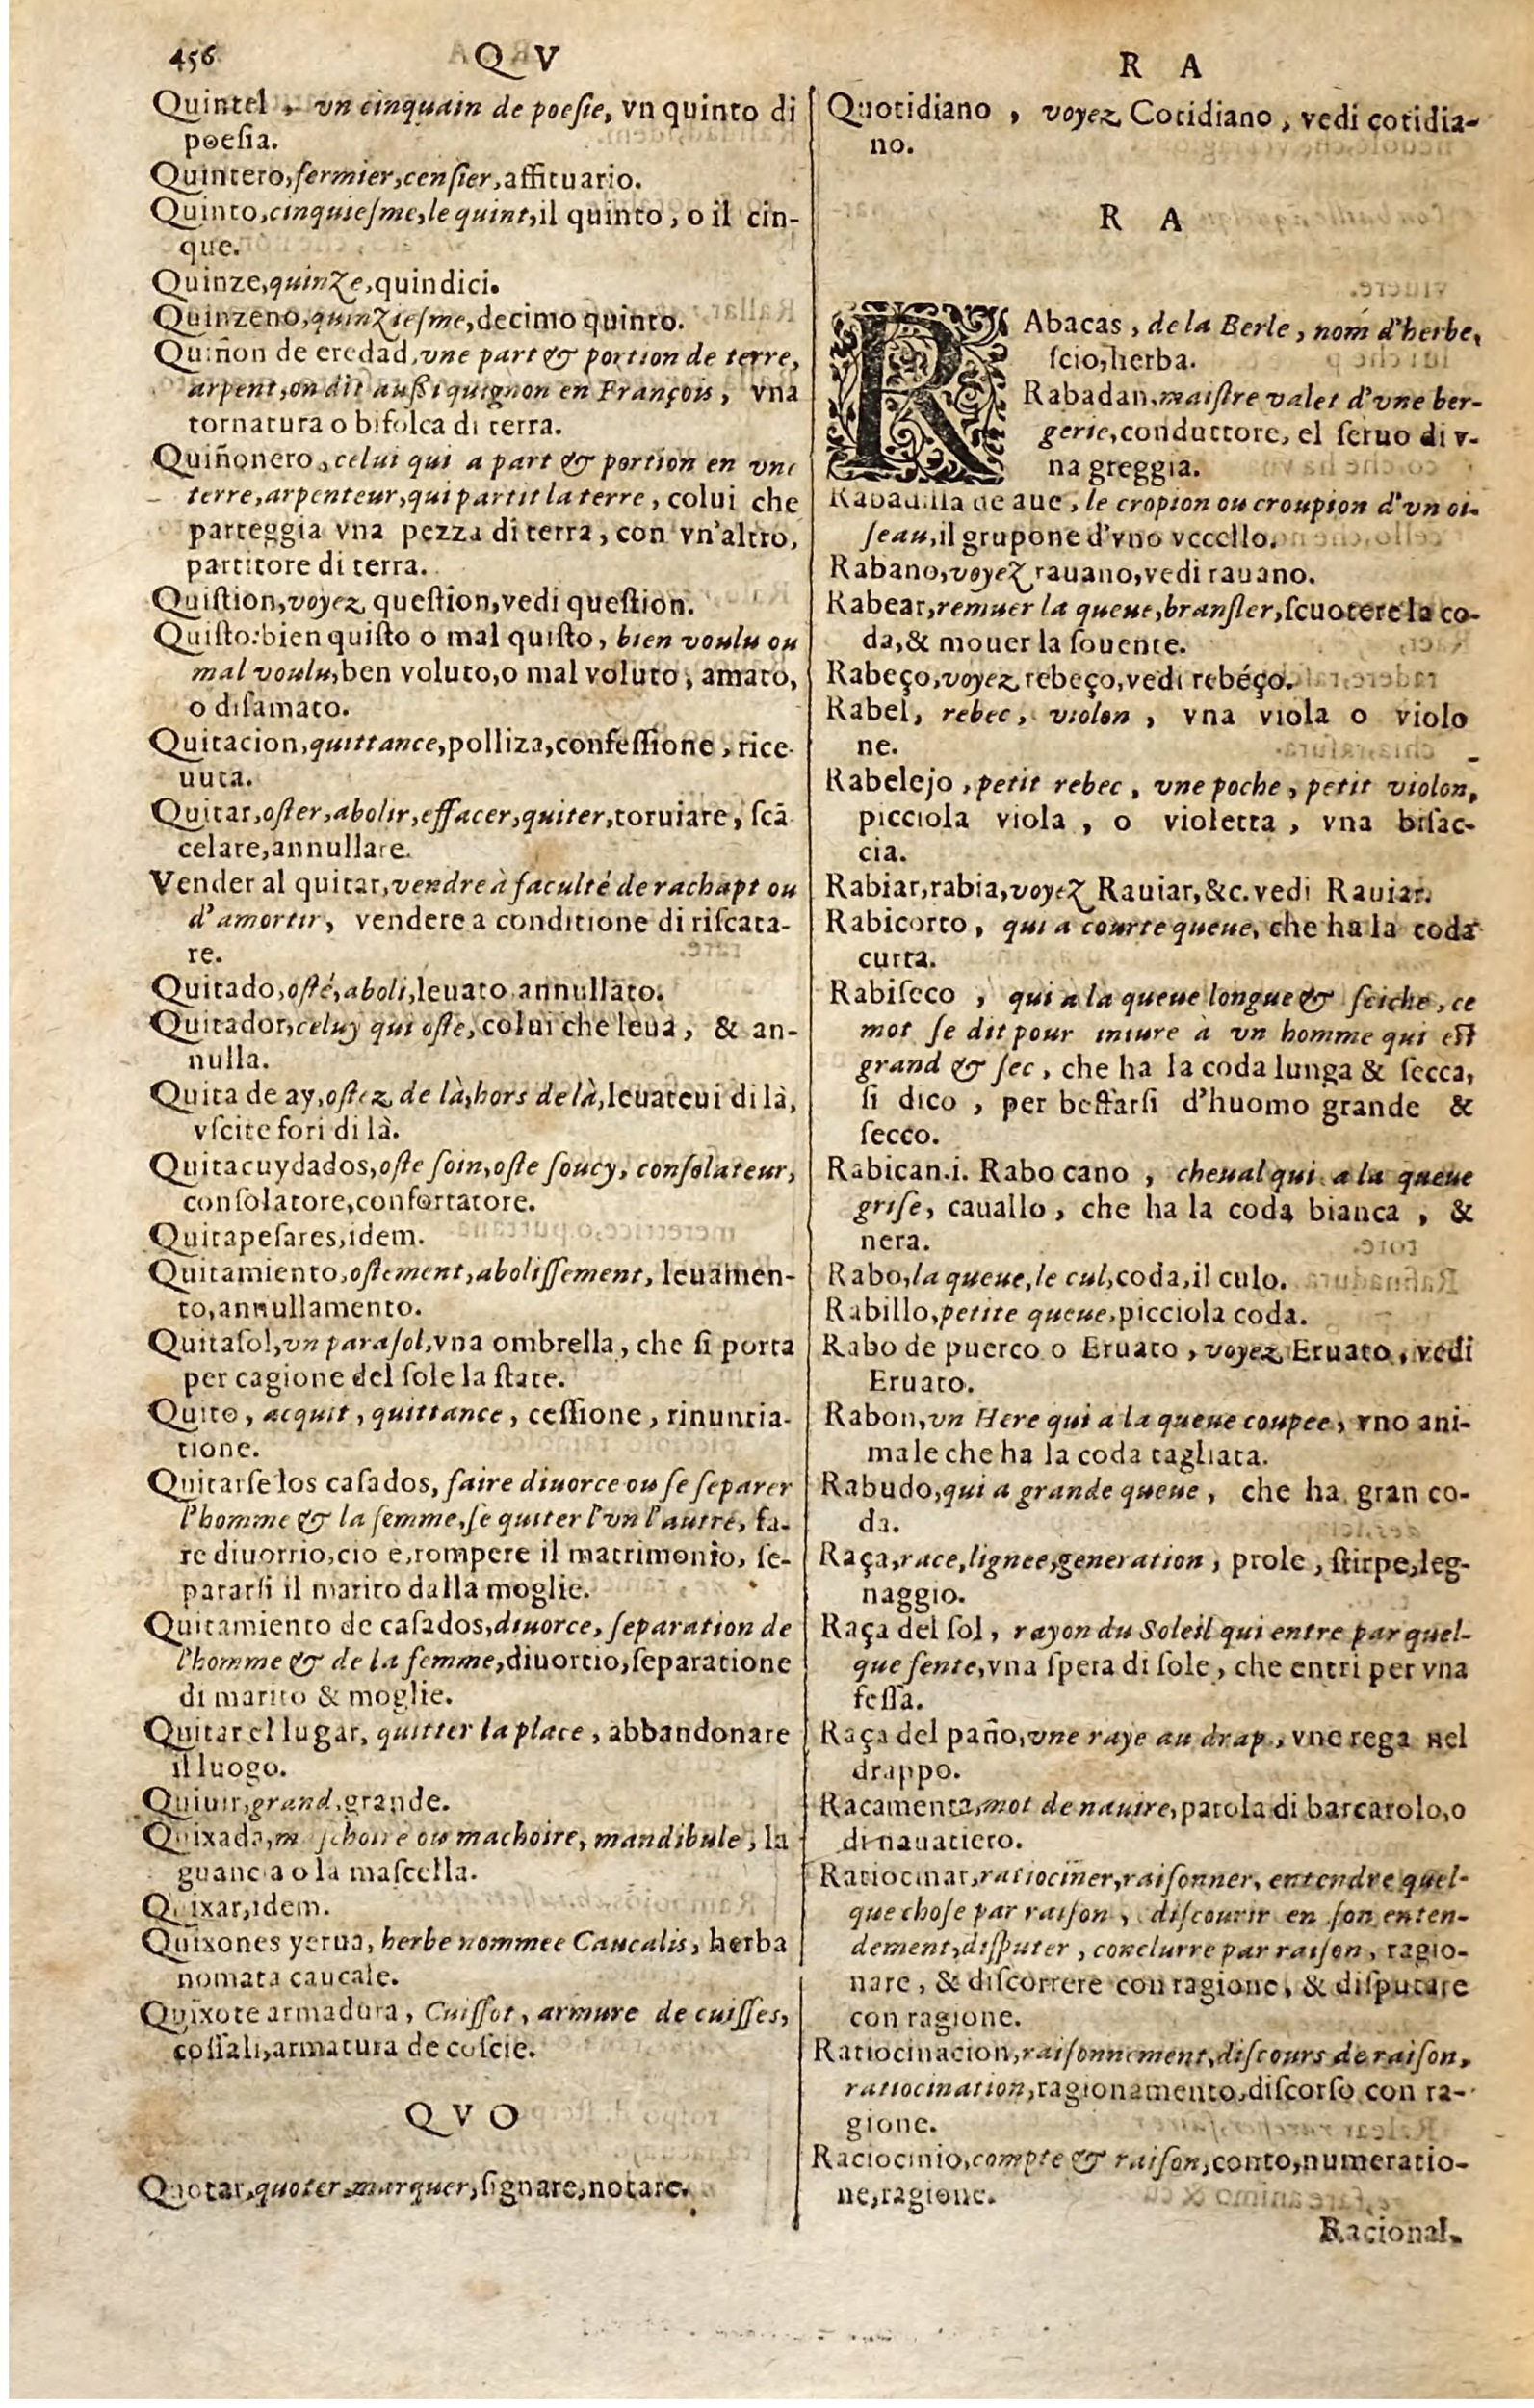 456 QV
Quintel, vn cinquain de poesie, vn quinto di
poesia.
Quintero, fermier, censier, affituario.
Quinto, cinquiesme, le quint, il quinto, o il cin-
que.
Quinze, quinze, quindici.
Quinzeno, quinziesme, decimo quinto.
Quiñon de eredad, vne part & portion de terre,
arpent, on dit aussi quignon en François, vna
tornatura o bifolca di terra.
Quiñonero, celui qui a part & portion en vne
terre, arpenteur, qui partit la terre, colui che
parteggia vna pezza di terra, con vn'altro,
partitore di terra.
Quistion, voyez question, vedi question.
Quisto: bien quisto o mal quisto, bien voulu ou
mal voulu, ben voluto, o mal voluto, amato,
o disamato.
Quitacion, quittance, polliza, confessione, rice-
uuta.
Quitar, oster, abolir, effacer, quiter, toruiare, scã
celare, annullare.
Vender al quitar, vendre à faculté de rachapt ou
d'amortir, vendere a conditione di riscata-
re.
Quitado, osté, aboli, leuato annullato.
Quitador, celuy qui oste, colui che leua, & an-
nulla.
Quita de ay, ostez de là, hors de là, leuateui di là,
vscite fori di là.
Quitacuydados, oste soin, oste soucy, consolateur,
consolatore, confortatore.
Quitapesares, idem.
Quitamiento, ostement, abolissement, leuamen-
to, annullamento.
Quitasol, vn parasol, vna ombrella, che si porta
per cagione del sole la state.
Quito, acquit, quittance, cessione, rinuntia-
tione.
Quitarse los casados, faire diuorce ou se separer
l'homme & la femme, se quiter l'vn l'autre, fa-
re diuorrio, cio e, rompere il matrimonio, se-
pararsi il marito dalla moglie.
Quitamiento de casados, diuorce, separation de
l'homme & de la femme, diuortio, separatione
di marito & moglie.
Quitar el lugar, quitter la place, abbandonare
il luogo.
Quiuir, grand, grande.
Quixada, maschoire ou machoire, mandibule, la
guancia o la mascella.
Quixar, idem.
Quixones yerua, herbe nommee Caucalis, herba
nomata caucale.
Quixote armadura, Cuissot, armure de cuisses,
cossali, armatura de coscie.
QVO
Quotar, quoter, marquer, signare, notare.
RA
Quotidiano, voyez Cotidiano, vedi cotidia-
no.
RA
RAbacas, de la Berle, nom d'herbe,
scio, herba.
Rabadan, maistre valet d'vne ber-
gerie, conduttore, el seruo di v-
na greggia.
Rabadilla de aue, le cropion ou croupion d'vn oi-
seau, il grupone d'vno vccello.
Rabano, voyez rauano, vedi rauano.
Rabear, remuer la queue, bransler, scuotere la co-
da, & mouer la souente.
Rabeço, voyez rebeço, vedi rebéço.
Rabel, rebec, violon, vna viola o violo
ne.
Rabelejo, petit rebec, vne poche, petit violon,
picciola viola, o violetta, vna bisac-
cia.
Rabiar, rabia, voyez Rauiar, &c. vedi Rauiar.
Rabicorto, qui a courte queue, che ha la coda
curta.
Rabiseco, qui a la queue longue & seiche, ce
mot se dit pour iniure à vn homme qui est
grand & sec, che ha la coda lunga & secca,
si dico, per beffarsi d'huomo grande &
secco.
Rabican.i. Rabo cano, cheual qui a la queue
grise, cauallo, che ha la coda bianca, &
nera.
Rabo, la queue, le cul, coda, il culo.
Rabillo, petite queue, picciola coda.
Rabo de puerco o Eruato, voyez Eruato, vedi
Eruato.
Rabon, vn Here qui a la queue coupee, vno ani-
male che ha la coda tagliata.
Rabudo, qui a grande queue, che ha gran co-
da.
Raça, race, lignee, generation, prole, stirpe, leg-
naggio.
Raça del sol, rayon du Soleil qui entre par quel-
que fente, vna spera di sole, che entri per vna
fessa.
Raça del paño, vne raye au drap, vne rega nel
drappo.
Racamenta, mot de nauire, parola di barcarolo, o
di nauatiero.
Raciocinar, ratiociner, raisonner, entendre quel-
que chose par raison, discourir en son enten-
dement, disputer, conclurre par raison, ragio-
nare, & discorrere con ragione, & disputare
con ragione.
Ratiocinacion, raisonnement, discours de raison,
ratiocination, ragionamento, discorso con ra-
gione.
Raciocinio, compte & raison, conto, numeratio-
ne, ragione.
Racional.